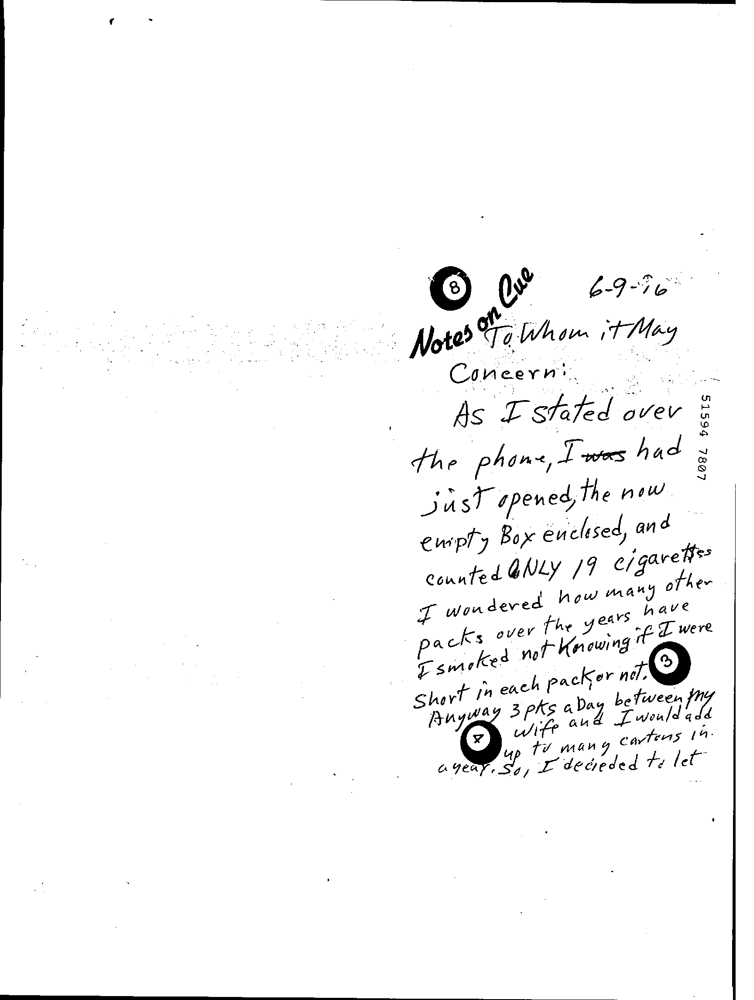 8
Notes on Cue
6-9-96
To Whom it May
Concern:
As I stated over
the phone, I was had
just opened, the now
empty Box enclosed, and
counted ONLY 19 cigarettes
I wondered how many other
packs over the years have
I smoked not Knowing if I were
Short in each pack, or not.
3
Anyway 3 pks a Day between my
wife and I would add
4
up to many cartons in
a year. So, I decieded to let
51594 7807